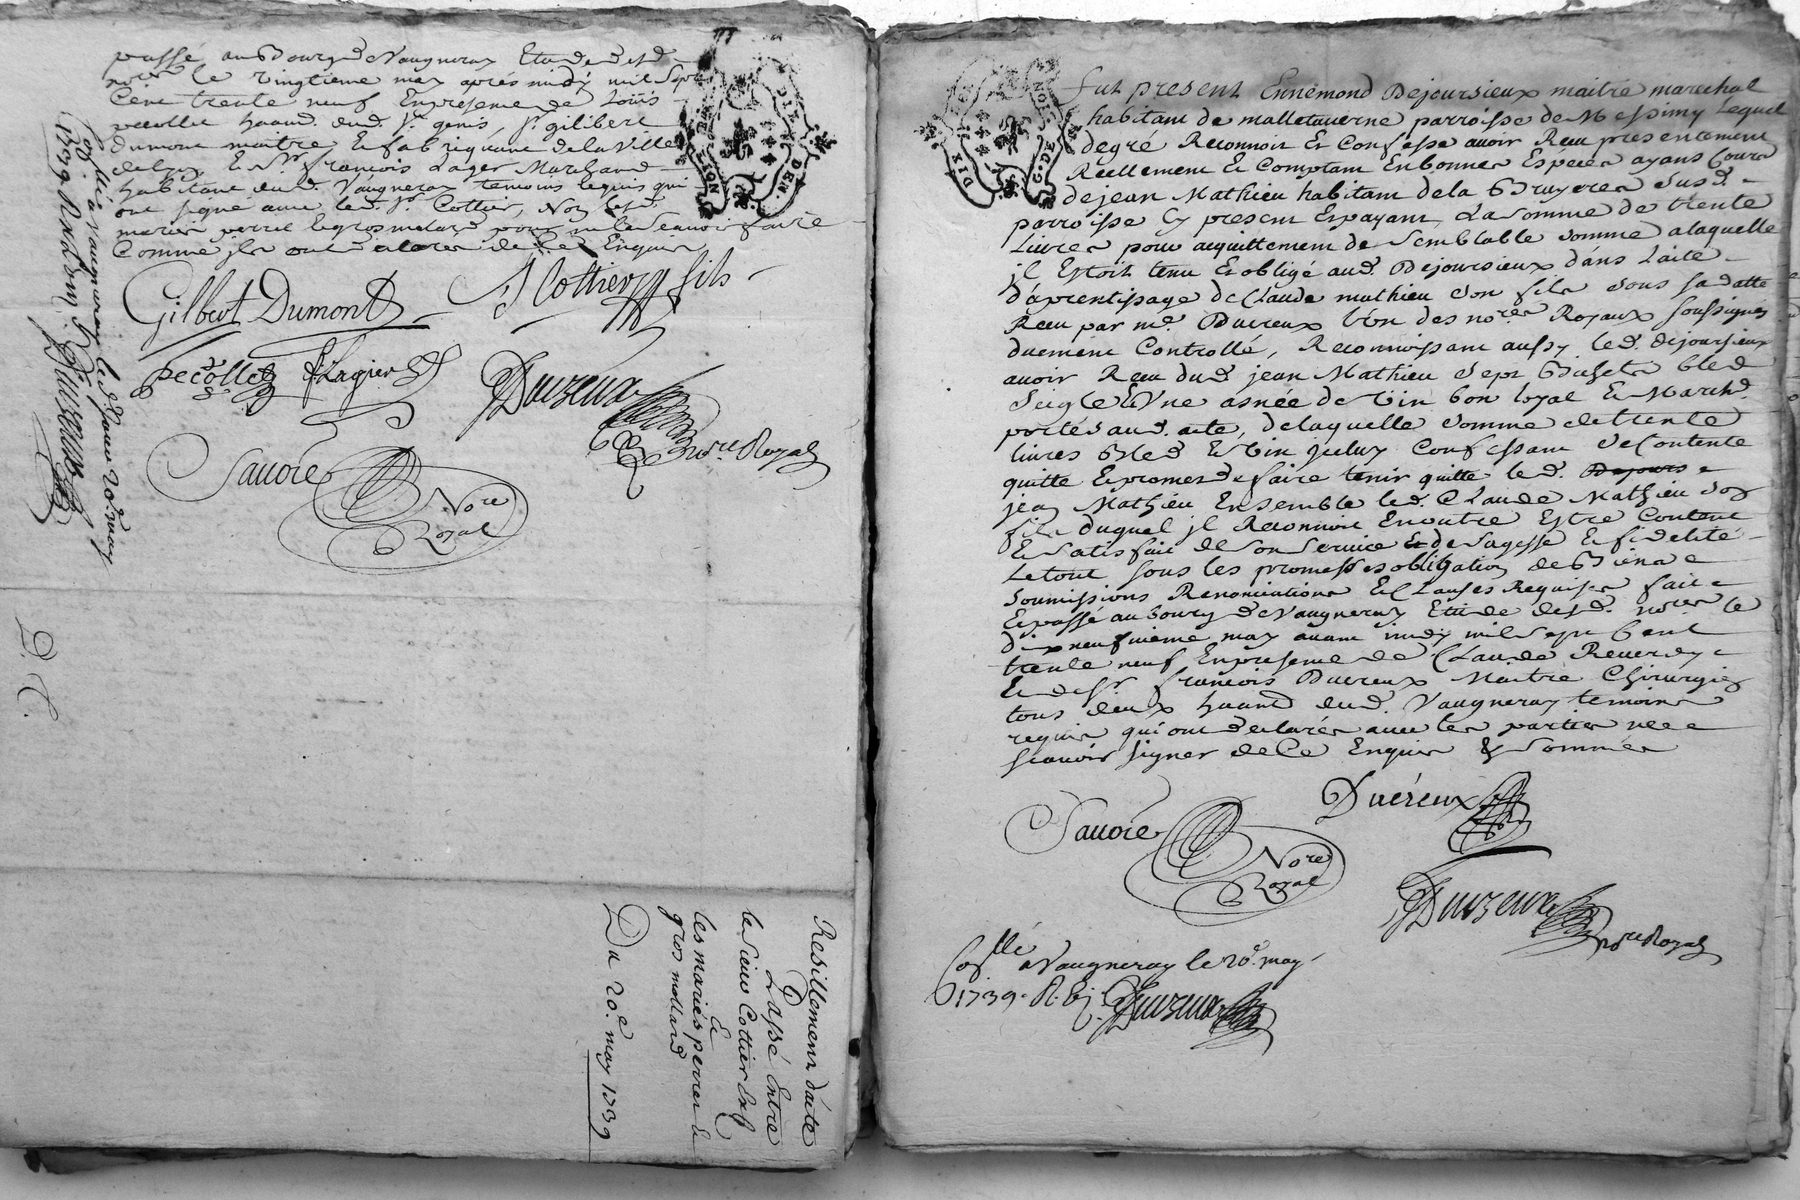 passé au Bourg de Vaugneray Etude desd.
nores le vingtieme may aprés midy mil sept
Cent trente neuf Enpresence de Loüis
recollet haant. dud. St. genis, Sr. gilibert
dumont maitre Et fabriquant de la Ville
de Lyon Et Sr françois Lager Marchand
habitant dud. Vaugneray temoins requis qui
ont signé avec led. Sr. Cottier, Non lesd.
mariés perret Legrosmolard pour ne le sçavoir faire
Comme ils ont déclaré de Ce Enquis
Gilbert Dumont
Cottier fils
Pecollet
Lagier
Duvzeux
nore Royal
Savoie
Nore
Royal
Conllé a Vaugneray le 20e. may
1739
D. C.
Resillement d'acte
Passé Entre
le sieur Cottier
Et
les mariés perret &
gros mollard
Du 20e. may 1739
GDE LION
DIX DEN.
Fut present Ennemond Dejoursieux maitre marechal
habitant de malletaverne parroisse de Messimy Lequel
degré Reconnoit Et Confesse avoir Reçu presentement
Reellement Et Comptant En bonnes Espèces ayant Cours
de jean Mathieu habitant de la Bruyeres susd.
parroisse Cy present Et payant, La somme de trente
Livres pour acquittement de semblable somme a laquelle
il Estoit tenu Et obligé aud. Dejoursieux dans Lacte
d'aprentissage de Claude mathieu son fils sous sa datte
Reçu par me. Ducreux L'un des nores Royaux soussignés
duement Controllé, Reconnoissant aussy led. dejoursieux
avoir Reçu dud. jean Mathieu sept Bichets bled
seigle Et Une asnée de vin bon loyal Et March.
portés aud. acte, de laquelle somme de trente
livres bled Et vin jceluy Confessant se Contente
quitte Et promet de faire tenir quitte led. Dejours
jean Mathieu Ensemble led. Claude Mathieu son
fils duquel il Reconnoit En outre Estre Content
Et satisfait de son service Et de sagesse Et fidelité
Le tout sous les promesses obligation de Biens
soumissions Renonciations Et Clauses Requises fait
Et passé au bourg de Vaugneray Etude desd. nores le
dixneufvieme may avant midy mil sept Cent
trente neuf Enpresence de Claude Reverdy
Et de Sr. françois Ducreux Maitre Chirurgien
tous deux haant dud. Vaugneray temoins
requis qui ont déclarés avec les parties ne
scavoir signer de Ce Enquis & sommés
Ducreux
Savoie
Nore
Royal
Duvzeux
nore Royal
Conllé a Vaugneray le 20e. may
1739. R.
Duvzeux